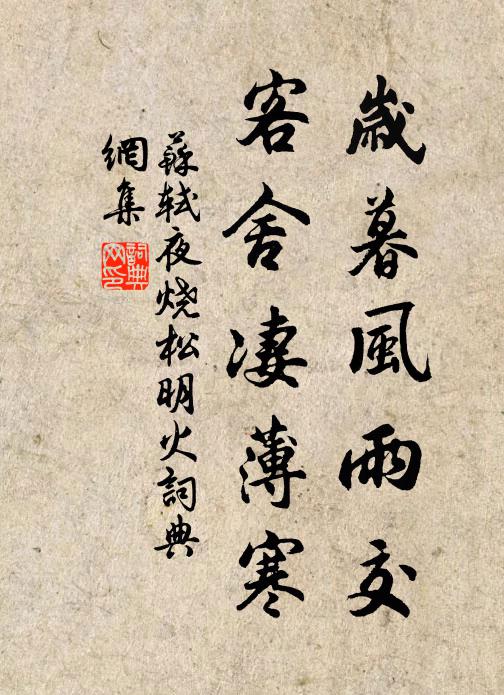 歲暮風雨交
客舍淒薄寒
蘇軾夜燒松明火詞典
網集
詞典
网印